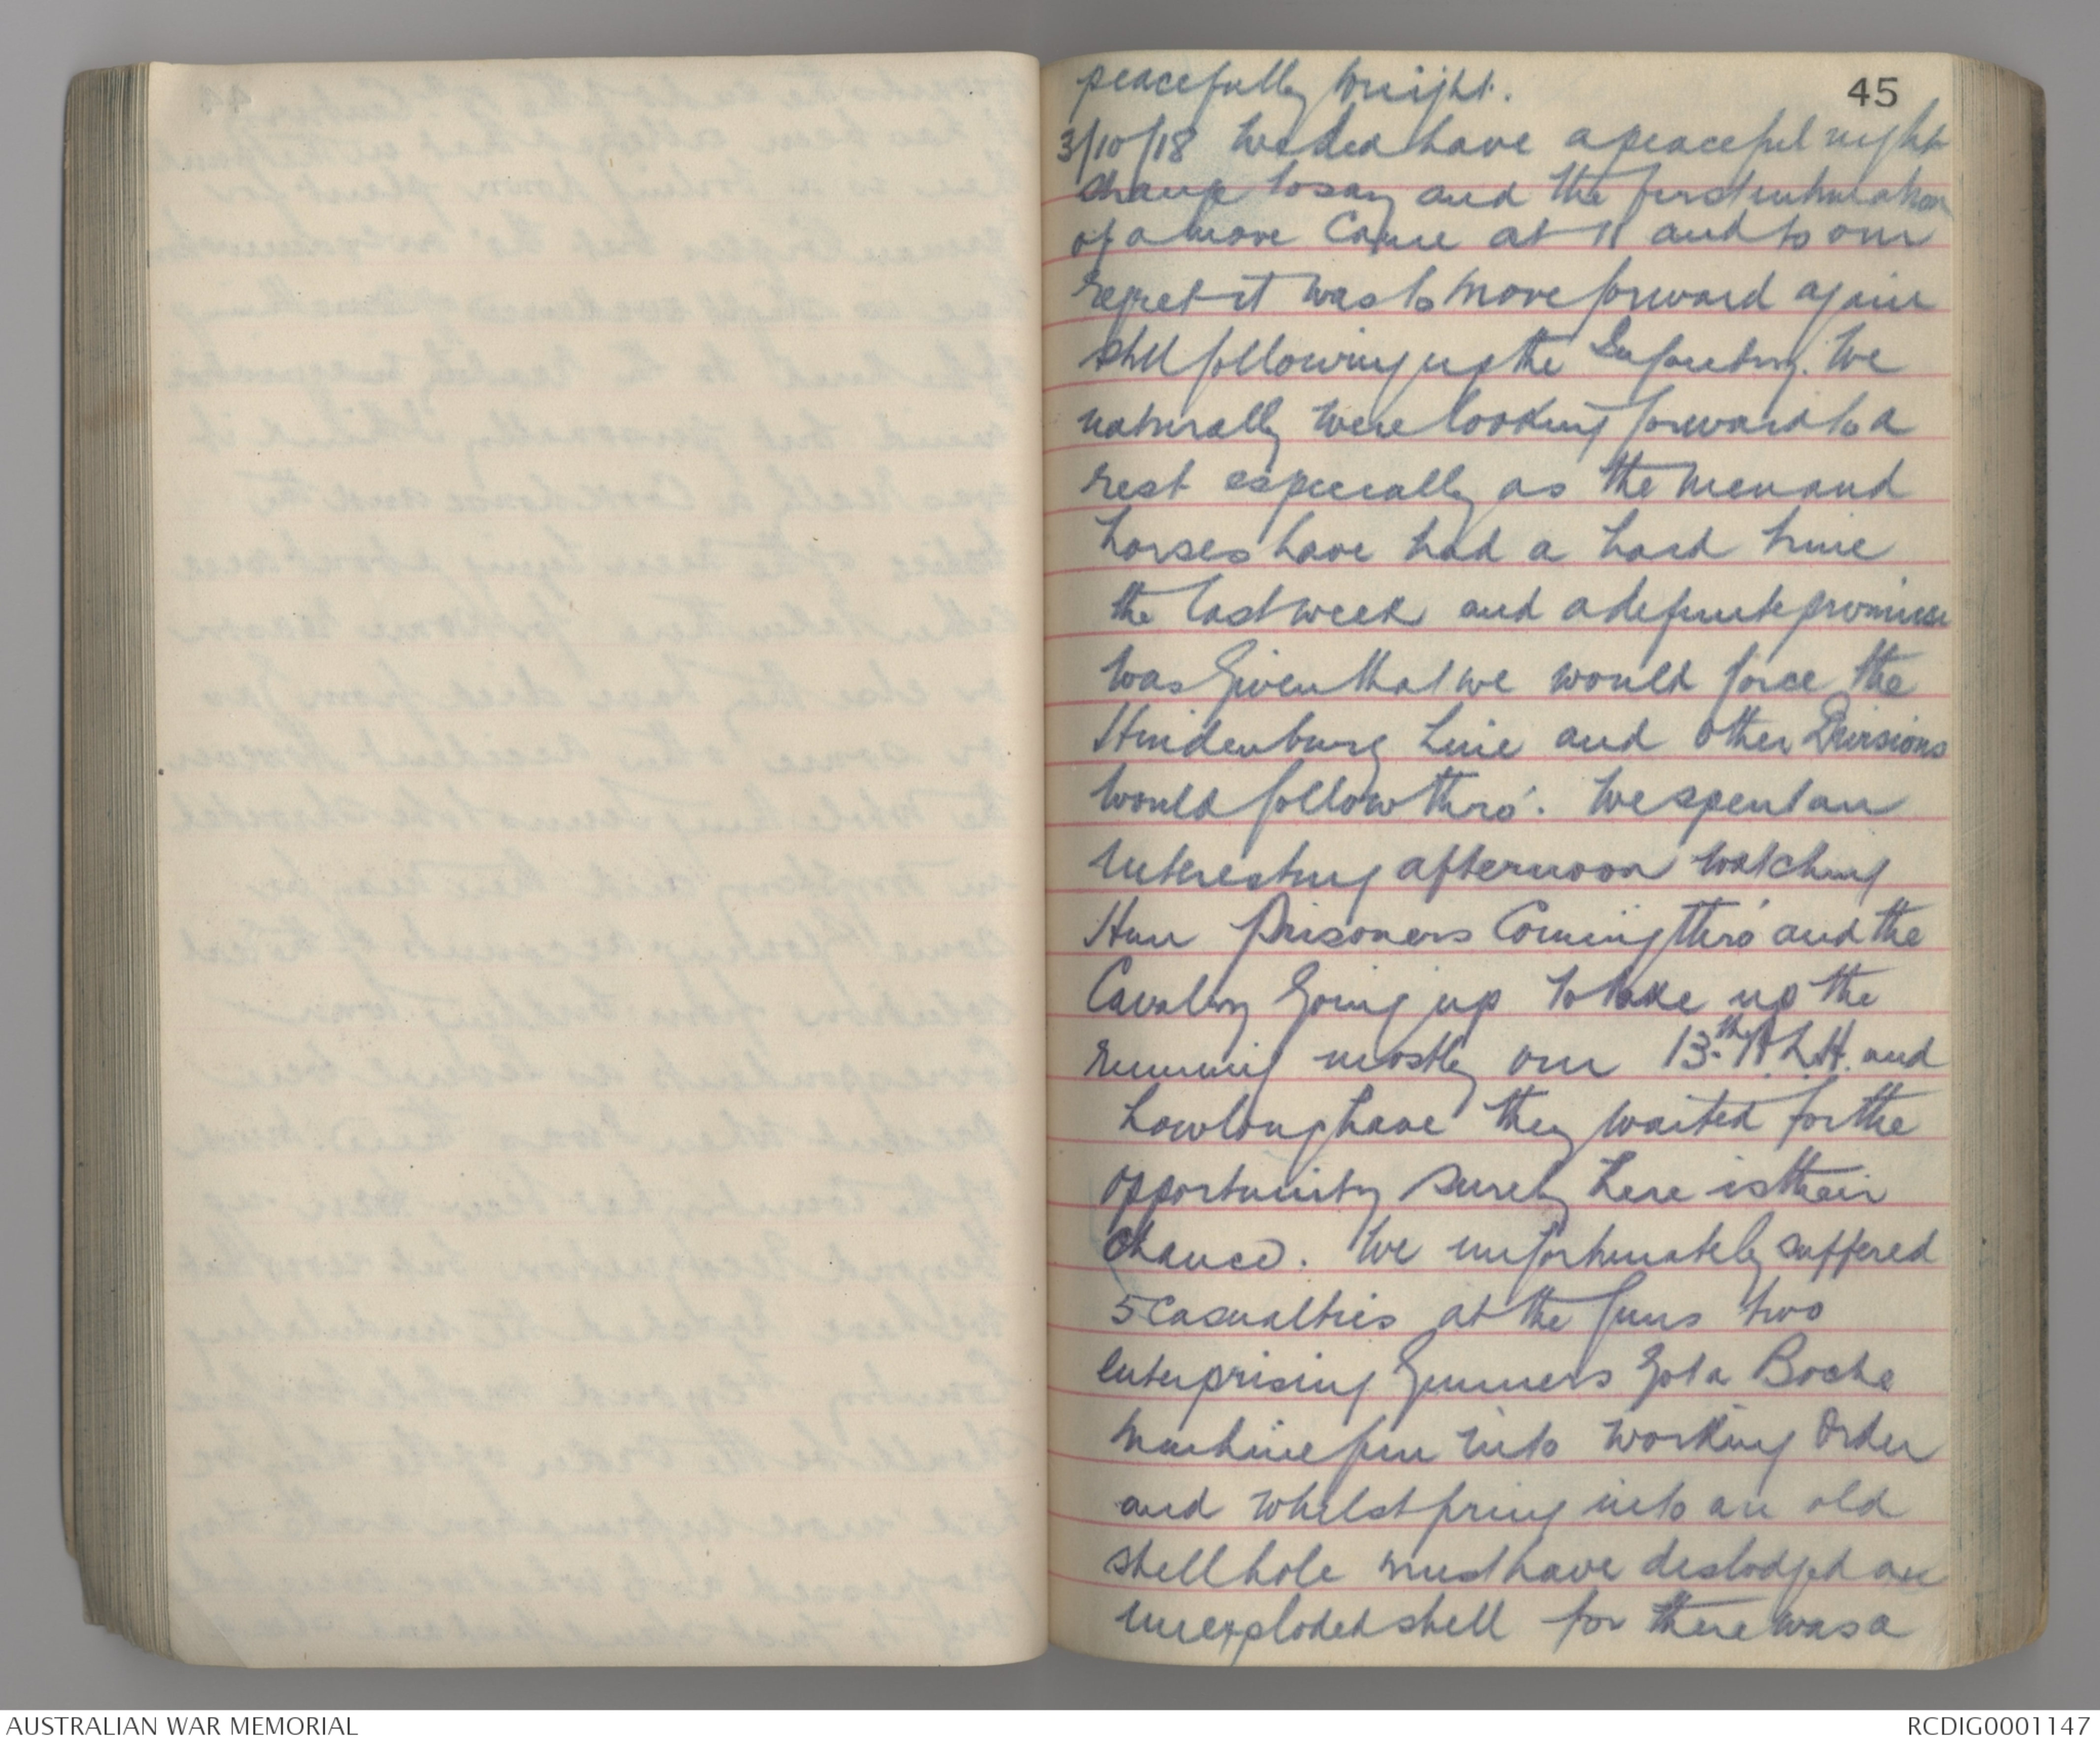 45
peacefully tonight.
3/10/18 We did have a peaceful night
strange to say and the first intimation
of a move Came at 11 and to our
regret it was to move forward again
still following up the Infantry. We
naturally were looking forward to a
rest especially as the men and
horses have had a hard time
the last week and a definite promise
was given that we would force the
Hindenburg Line and other Divisions
would follow thro'. We spent an
interesting afternoon watching
Hun Prisoners Coming thro' and the
Cavalry going up to take up the
running mostly our 13th A.L.H. and
how long have they waited for the
opportunity surely here is their
chance. We unfortunately suffered
5 Casualties at the guns two
enterprising Gunners got a Boche
machine gun into working order
and whilst firing into an old
shell hole must have dislodged an
unexploded shell for there was a
AUSTRALIAN WAR MEMORIAL
RCDIG0001147